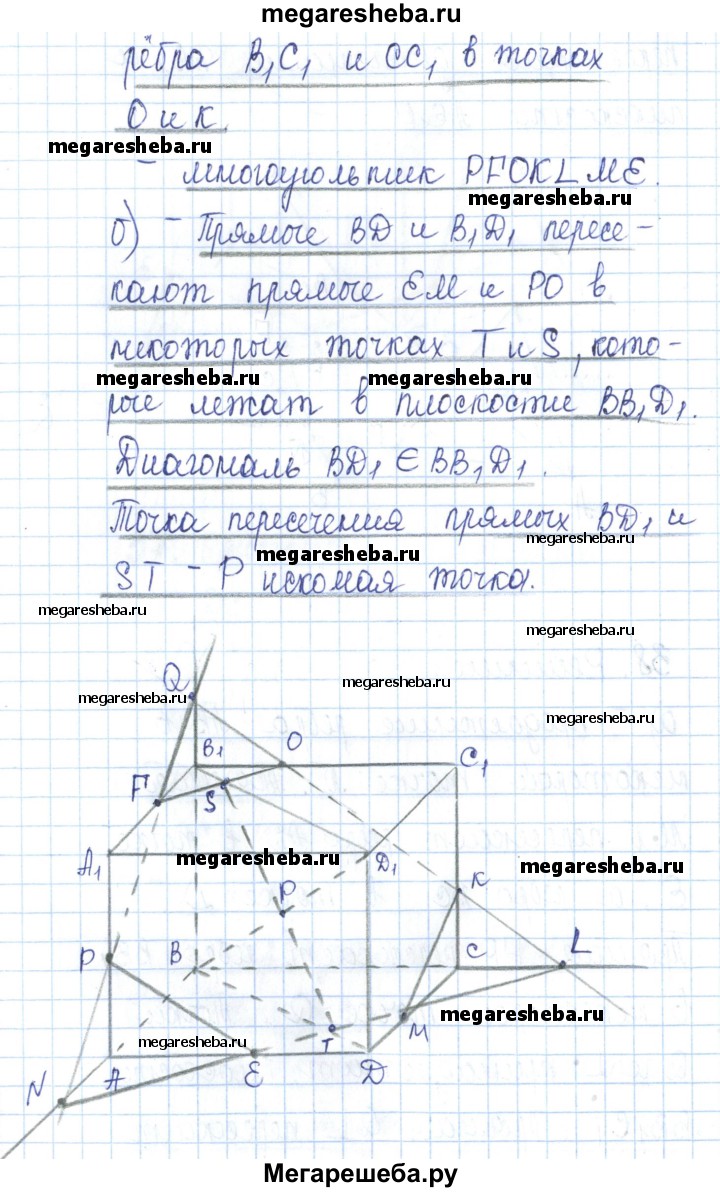 megaresheba.ru
рёбра B₁C₁ и CC₁ в точках
О и К.
megaresheba.ru
– многоугольник PFOKLME.
megaresheba.ru
б) – Прямые BD и B₁D₁ пересе-
кают прямые ЕМ и РО в
некоторых точках T и S, кото-
megaresheba.ru megaresheba.ru
рые лежат в плоскостие BB₁D₁.
Диагональ BD₁ ∈ BB₁D₁.
Точка пересечения прямых BD₁ и
megaresheba.ru
megaresheba.ru
ST – P искомая точка.
megaresheba.ru
megaresheba.ru
Q
megaresheba.ru
megaresheba.ru
megaresheba.ru
B₁ O C₁
F S
A₁ megaresheba.ru D₁
megaresheba.ru
P K
P B C L
megaresheba.ru
M
megaresheba.ru T
N A E D
Мегарешеба.ру